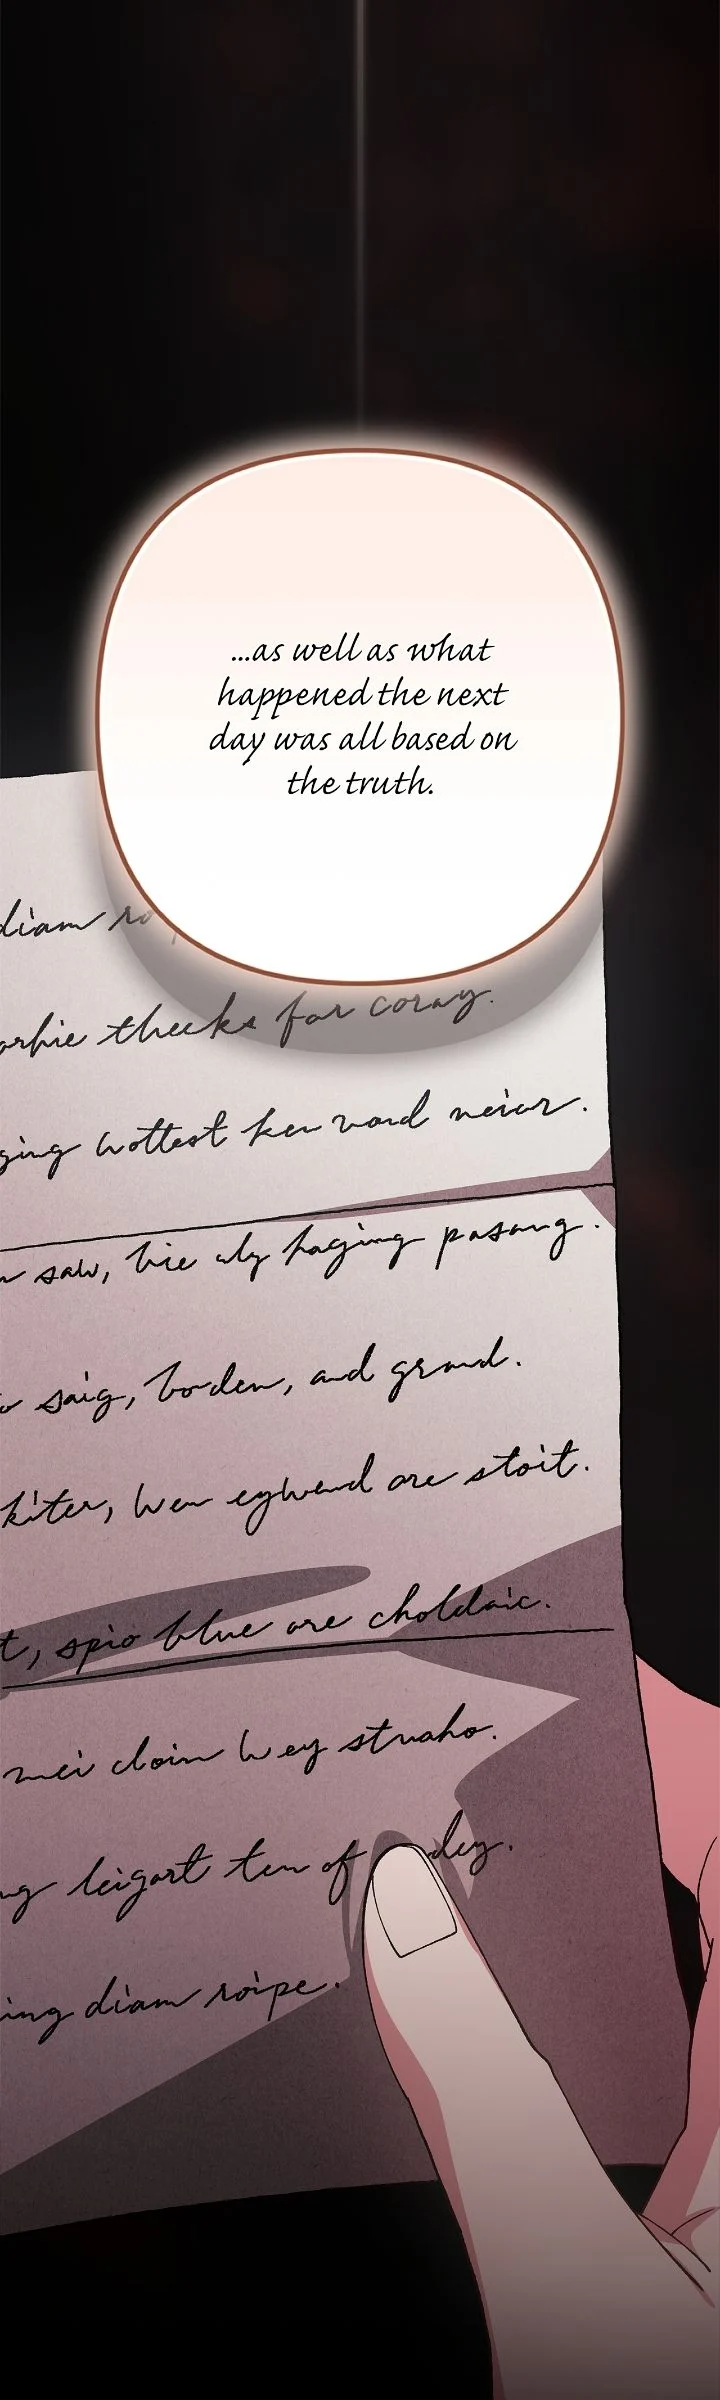 ...as well as what
happened the next
day was all based on
the truth.
diam
theeks for coray.
ging wottest ken vard neior.
saw, bie aly haging pasang.
saig, borden, and grand.
kiter, wen eywend are stoit.
t, spio blue are choldaic.
mei cloin wey struaho.
ng leigart ten of dey.
ing diam roipe.